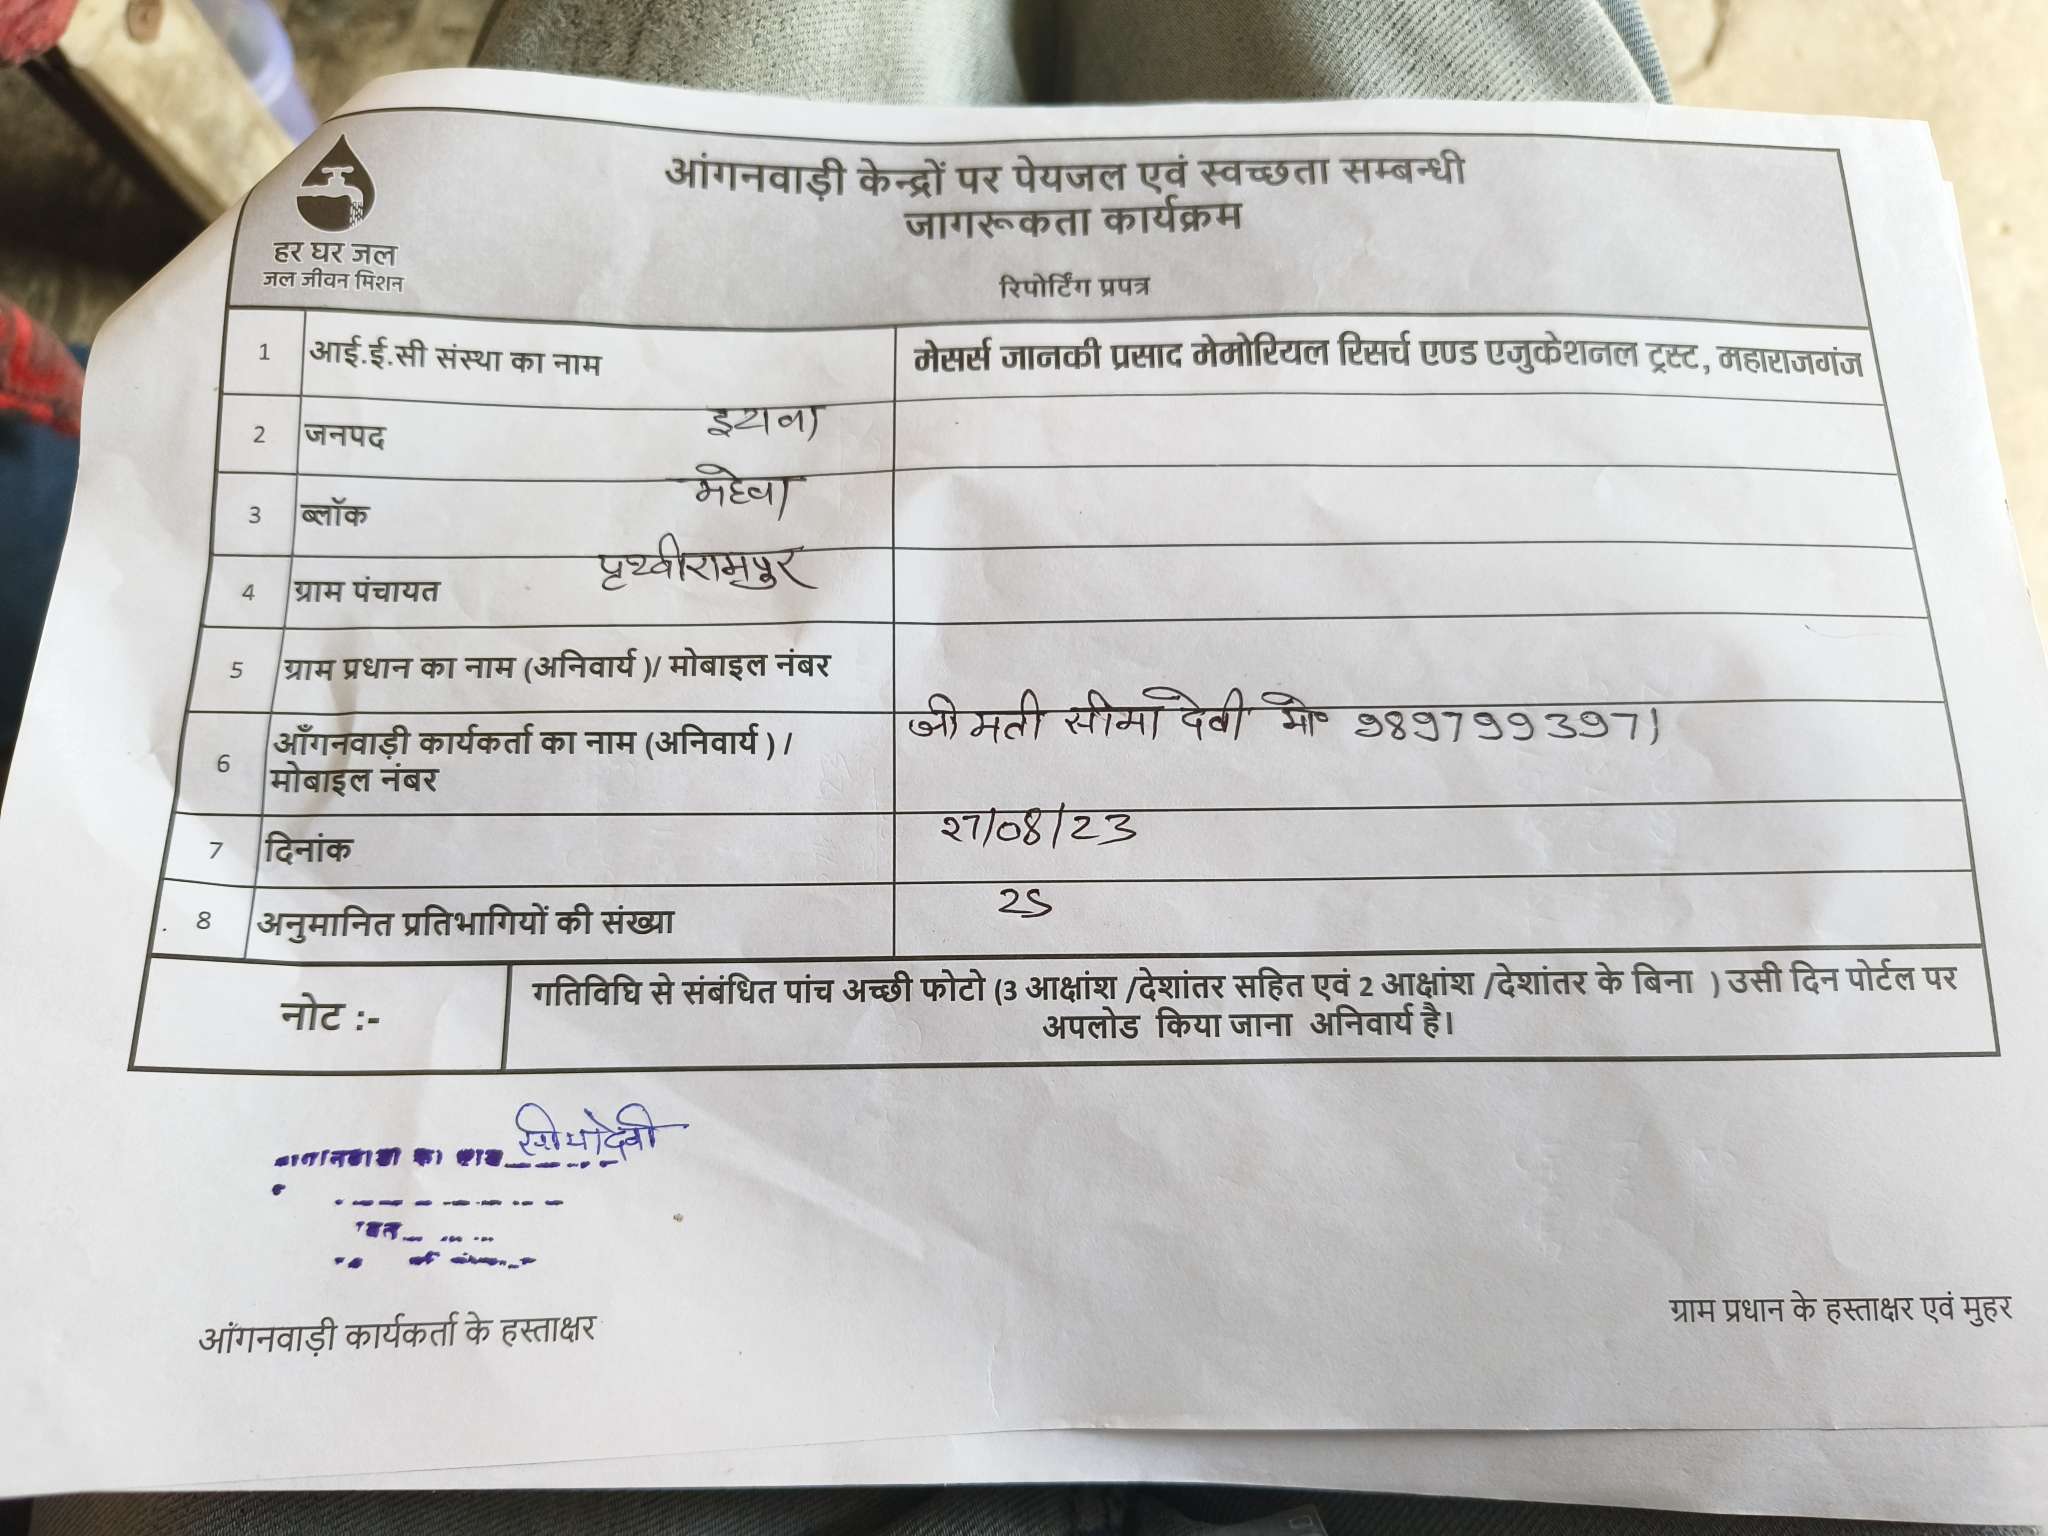 हर घर जल
जल जीवन मिशन
आंगनवाड़ी केन्द्रों पर पेयजल एवं स्वच्छता सम्बन्धी
जागरूकता कार्यक्रम
रिपोर्टिंग प्रपत्र
1 आई.ई.सी संस्था का नाम मेसर्स जानकी प्रसाद मेमोरियल रिसर्च एण्ड एजुकेशनल ट्रस्ट, महाराजगंज
2 जनपद
3 ब्लॉक महेवा
4 ग्राम पंचायत पृथ्वीरामपुर
5 ग्राम प्रधान का नाम (अनिवार्य )/ मोबाइल नंबर
6 आँगनवाड़ी कार्यकर्ता का नाम (अनिवार्य ) / श्रीमती सीमा देवी मो० 9897993971
मोबाइल नंबर
7 दिनांक 27/08/23
8 अनुमानित प्रतिभागियों की संख्या 25
नोट :- गतिविधि से संबंधित पांच अच्छी फोटो (3 आक्षांश /देशांतर सहित एवं 2 आक्षांश /देशांतर के बिना ) उसी दिन पोर्टल पर
अपलोड किया जाना अनिवार्य है।
सीमादेवी
आंगनवाड़ी कार्यकर्ता के हस्ताक्षर
ग्राम प्रधान के हस्ताक्षर एवं मुहर